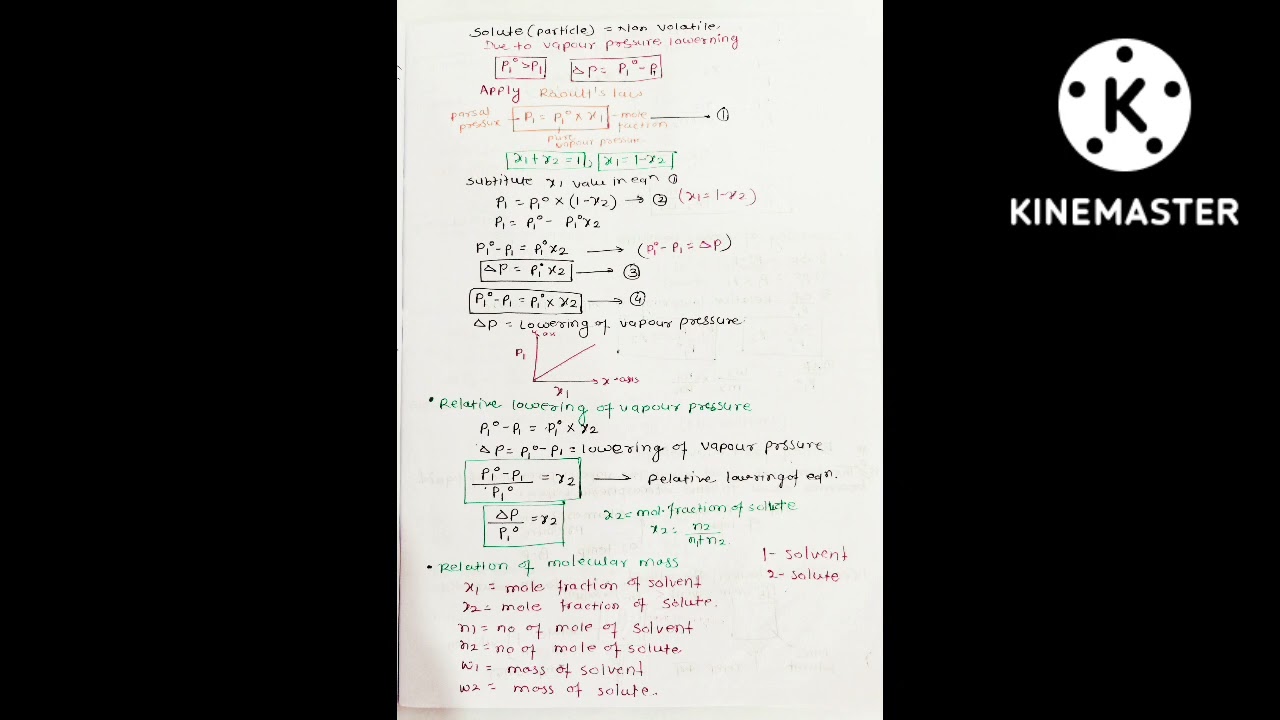 Solute (particle) = Non volatile.
Due to vapour pressure lowerning
P₁° > P₁ ΔP = P₁° - P₁
Apply Raoult's law
parsal pressure P₁ = P₁° × x₁ mole fraction ①
pure vapour pressure
x₁ + x₂ = 1, x₁ = 1 - x₂
substitute x₁ value in eqn ①
P₁ = P₁° × (1 - x₂) → ② (x₁ = 1 - x₂)
P₁ = P₁° - P₁°x₂
P₁° - P₁ = P₁°x₂ → (P₁° - P₁ = ΔP)
ΔP = P₁°x₂ → ③
P₁° - P₁ = P₁° × x₂ → ④
ΔP = lowering of vapour pressure
P₁
x-axis
x₁
• Relative lowering of vapour pressure
P₁° - P₁ = P₁° × x₂
ΔP = P₁° - P₁ = lowering of vapour prssure
P₁° - P₁ / P₁° = x₂ → Relative lowring of eqn.
ΔP / P₁° = x₂
x₂ = mol. fraction of solute
x₂ = n₂ / n₁ + n₂
1 - Solvent
2 - Solute
• Relation of molecular mass
x₁ = mole fraction of solvent
x₂ = mole fraction of solute.
n₁ = no of mole of solvent
n₂ = no of mole of solute
w₁ = mass of solvent
w₂ = mass of solute..
K
KINEMASTER